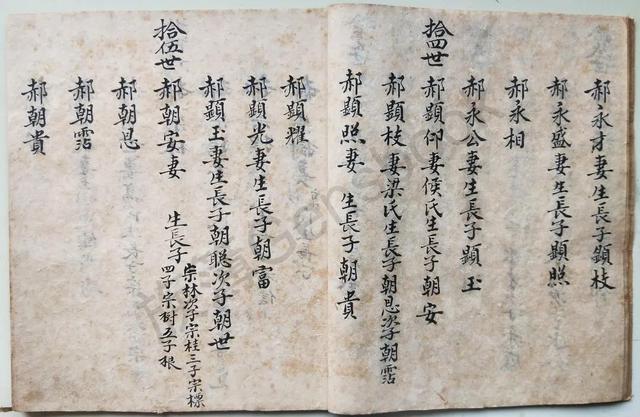 郝永才妻生長子顕枝
郝永盛妻生長子顕照
郝永相
郝永公妻生長子顕玉
拾四世
郝顕仰妻侯氏生長子朝安
郝顕枝妻梁氏生長子朝恩次子朝霑
郝顕照妻 生長子朝貴
郝顕耀
郝顕光妻生長子朝富
郝顕玉妻生長子朝聡次子朝世
拾伍世
郝朝安妻 生長子宗林次子宗桂三子宗標
四子宗树五子根
郝朝恩
郝朝霑
郝朝貴